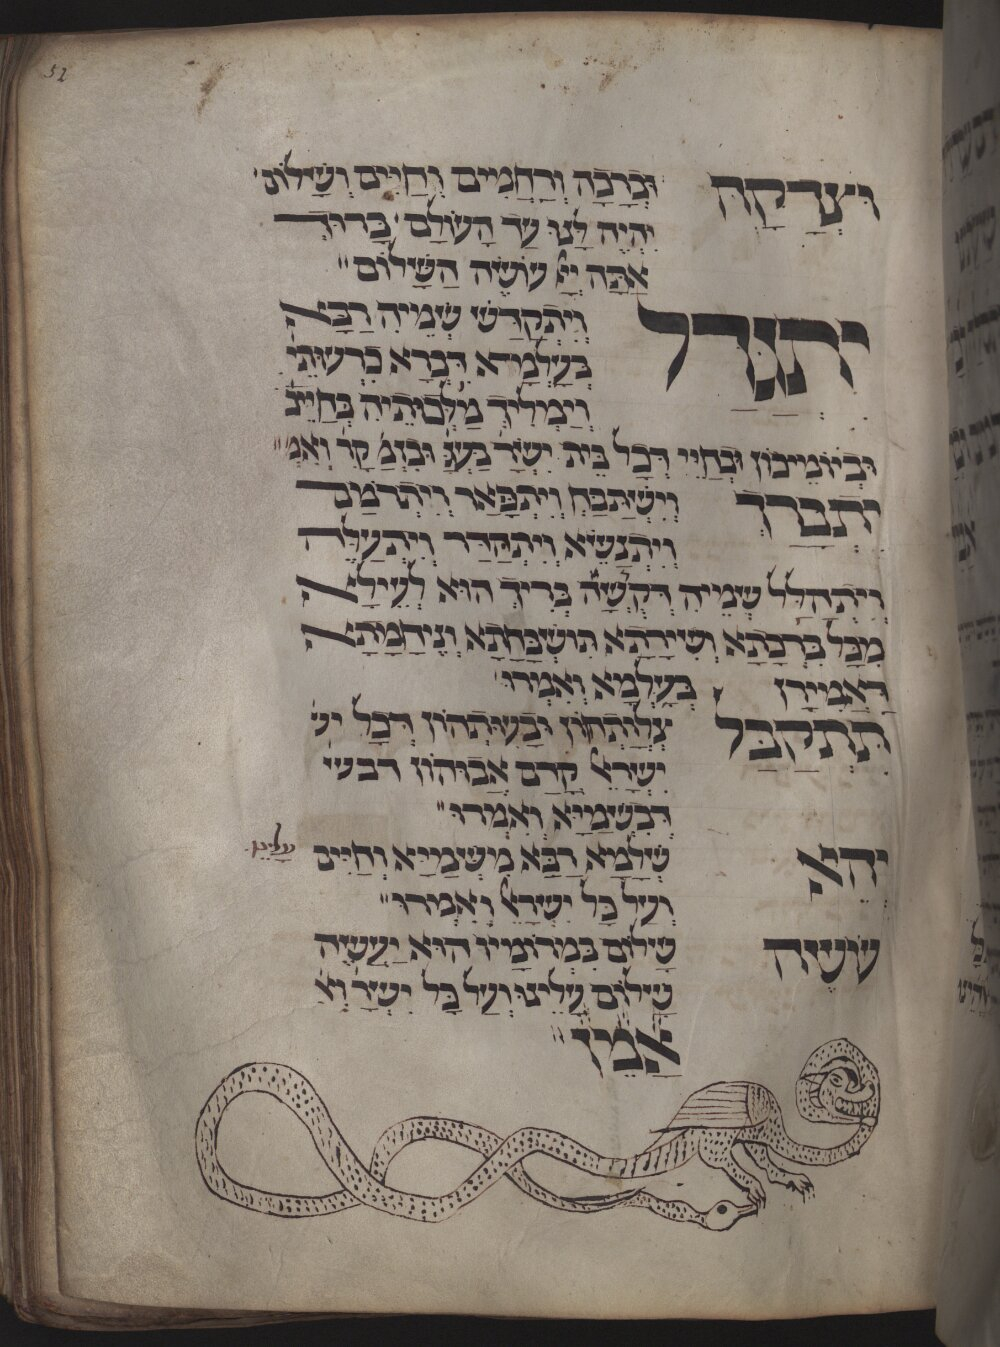 52
וּצְדָקָה וּבְרָכָה וְרַחֲמִים וְחַיִּים וְשָׁלוֹם
יִהְיֶה לָּנוּ עַד הָעוֹלָם בָּרוּךְ
אַתָּה יְיָ עוֹשֶׂה הַשָּׁלוֹם
יִתְגַּדַּל וְיִתְקַדַּשׁ שְׁמֵיהּ רַבָּא
בְּעָלְמָא דִּבְרָא כִרְעוּתֵי
וְיַמְלִיךְ מַלְכוּתֵיהּ בְּחַיֵּיכ
וּבְיוֹמֵיכוֹן וּבְחַיֵּי דְכָל בֵּית יִשְׂרָ בַּעֲגָ וּבִזְמַ קָר וְאִמְ
יִתְבָּרַךְ וְיִשְׁתַּבַּח וְיִתְפָּאַר וְיִתְרֹמַם
וְיִתְנַשֵּׂא וְיִתְהַדַּר וְיִתְעַלֶּה
וְיִתְהַלַּל שְׁמֵיהּ דְּקֻשָׁה בְּרִיךְ הוּא לְעֵילָא
מִכָּל בִּרְכָתָא וְשִׁירָתָא תּוּשְׁבְּחָתָא וְנֶיחָמָתָא
דַּאֲמִירָן בְּעָלְמָא וְאִמְרוּ
תִּתְקַבַּל צְלוֹתְהוֹן וּבָעוּתְהוֹן דְּכָל יש
יִשְׂרָאֵל קֳדָם אֲבוּהוֹן
דְּבִשְׁמַיָּא וְאִמְרוּ
יְהֵא שְׁלָמָא רַבָּא מִשְּׁמַיָּא וְחַיִּים עָלֵינוּ
וְעַל כָּל יִשְׂרָאֵל וְאִמְרוּ
עֹשֶׂה שָׁלוֹם בִּמְרוֹמָיו הוּא יַעֲשֶׂה
שָׁלוֹם עָלֵינוּ וְעַל כָּל יִשְׂרָ וְא
אָמֵן